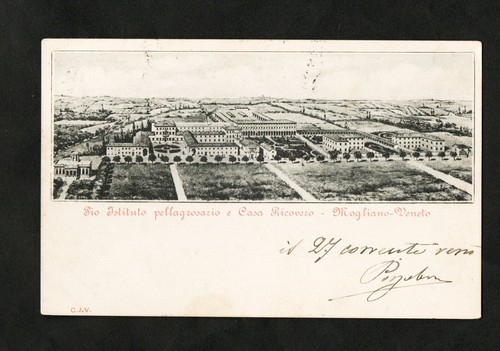 Pio Istituto pellagrosario e Casa Ricovero - Mogliano-Veneto
il 27 corrente
C.J.V.